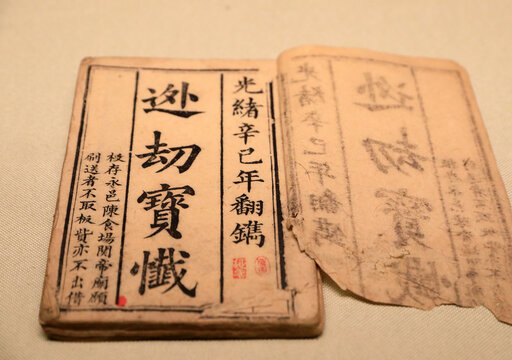 光緒辛巳年翻鐫
迯劫寶懺
板存永邑陳食場関帝廟願
刷送者不取板貲亦不出借